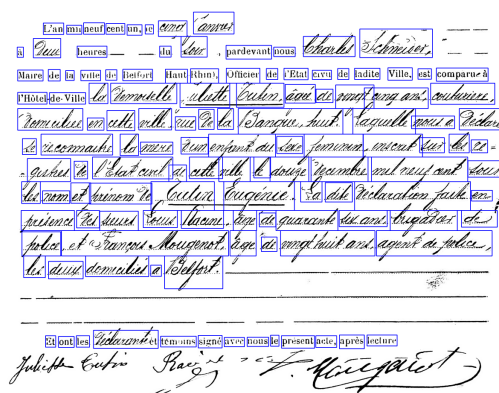 L'an mil neuf cent un, le cinq Janvier
à deux heures du soir, pardevant nous Charles Schmuser,
Maire de la ville de Belfort (Haut-Rhin), Officier de l'Etat civil de ladite Ville, est comparue à
l'Hôtel-de-Ville la demoiselle Juliette Cutin, âgée de vingt cinq ans, couturière,
domiciliée en cette ville, rue de la huit, laquelle nous a déclaré
se reconnaître la mère d'un enfant du sexe féminin, inscrit sur les re-
gistres de l'Etat civil de cette ville le douze Décembre mil neuf cent sous
les nom et prénom de Cutin Eugénie. La dite déclaration faite en
présence des sieurs Louis Racine, âgé de quarante six ans, brigadier de
police, et François Mougenot, âgé de vingt huit ans, agent de police,
les deux domiciliés à Belfort.
Et ont les déclarante et témoins signé avec nous le présent acte, après lecture
Juliette Cutin Racine F. Mougenot